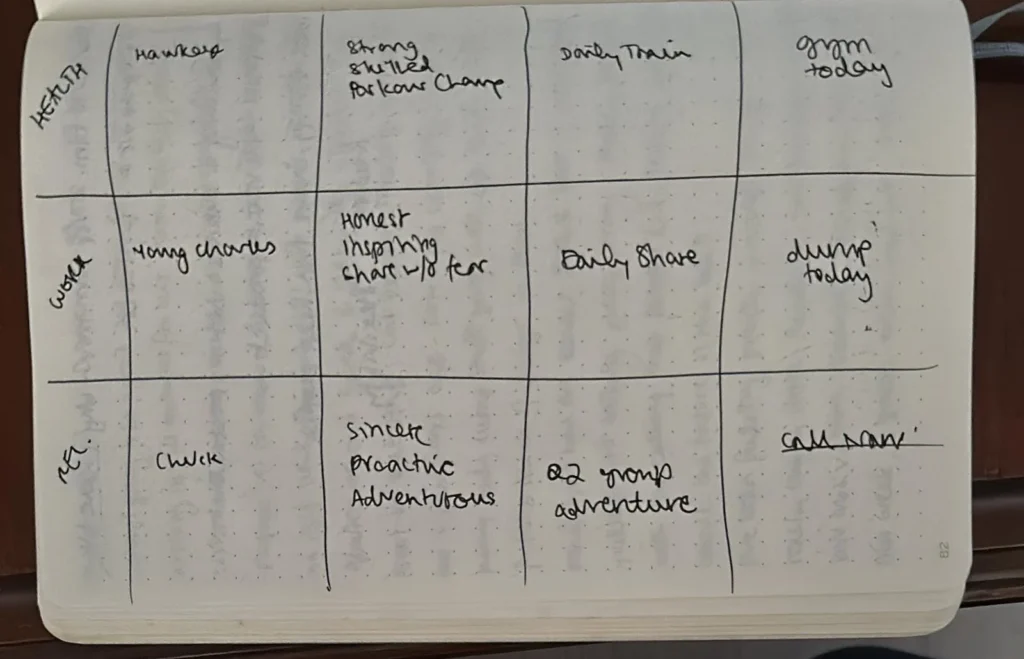 HEALTH
Hawkeye
Strong
Skilled
Parkour Champ
Daily Train
gym
today
WORK
Young Charles
Honest
Inspiring
Share w/o fear
Daily Share
dump
today
REL.
Chuck
Sincere
Proactive
Adventurous
Q2 group
adventure
82